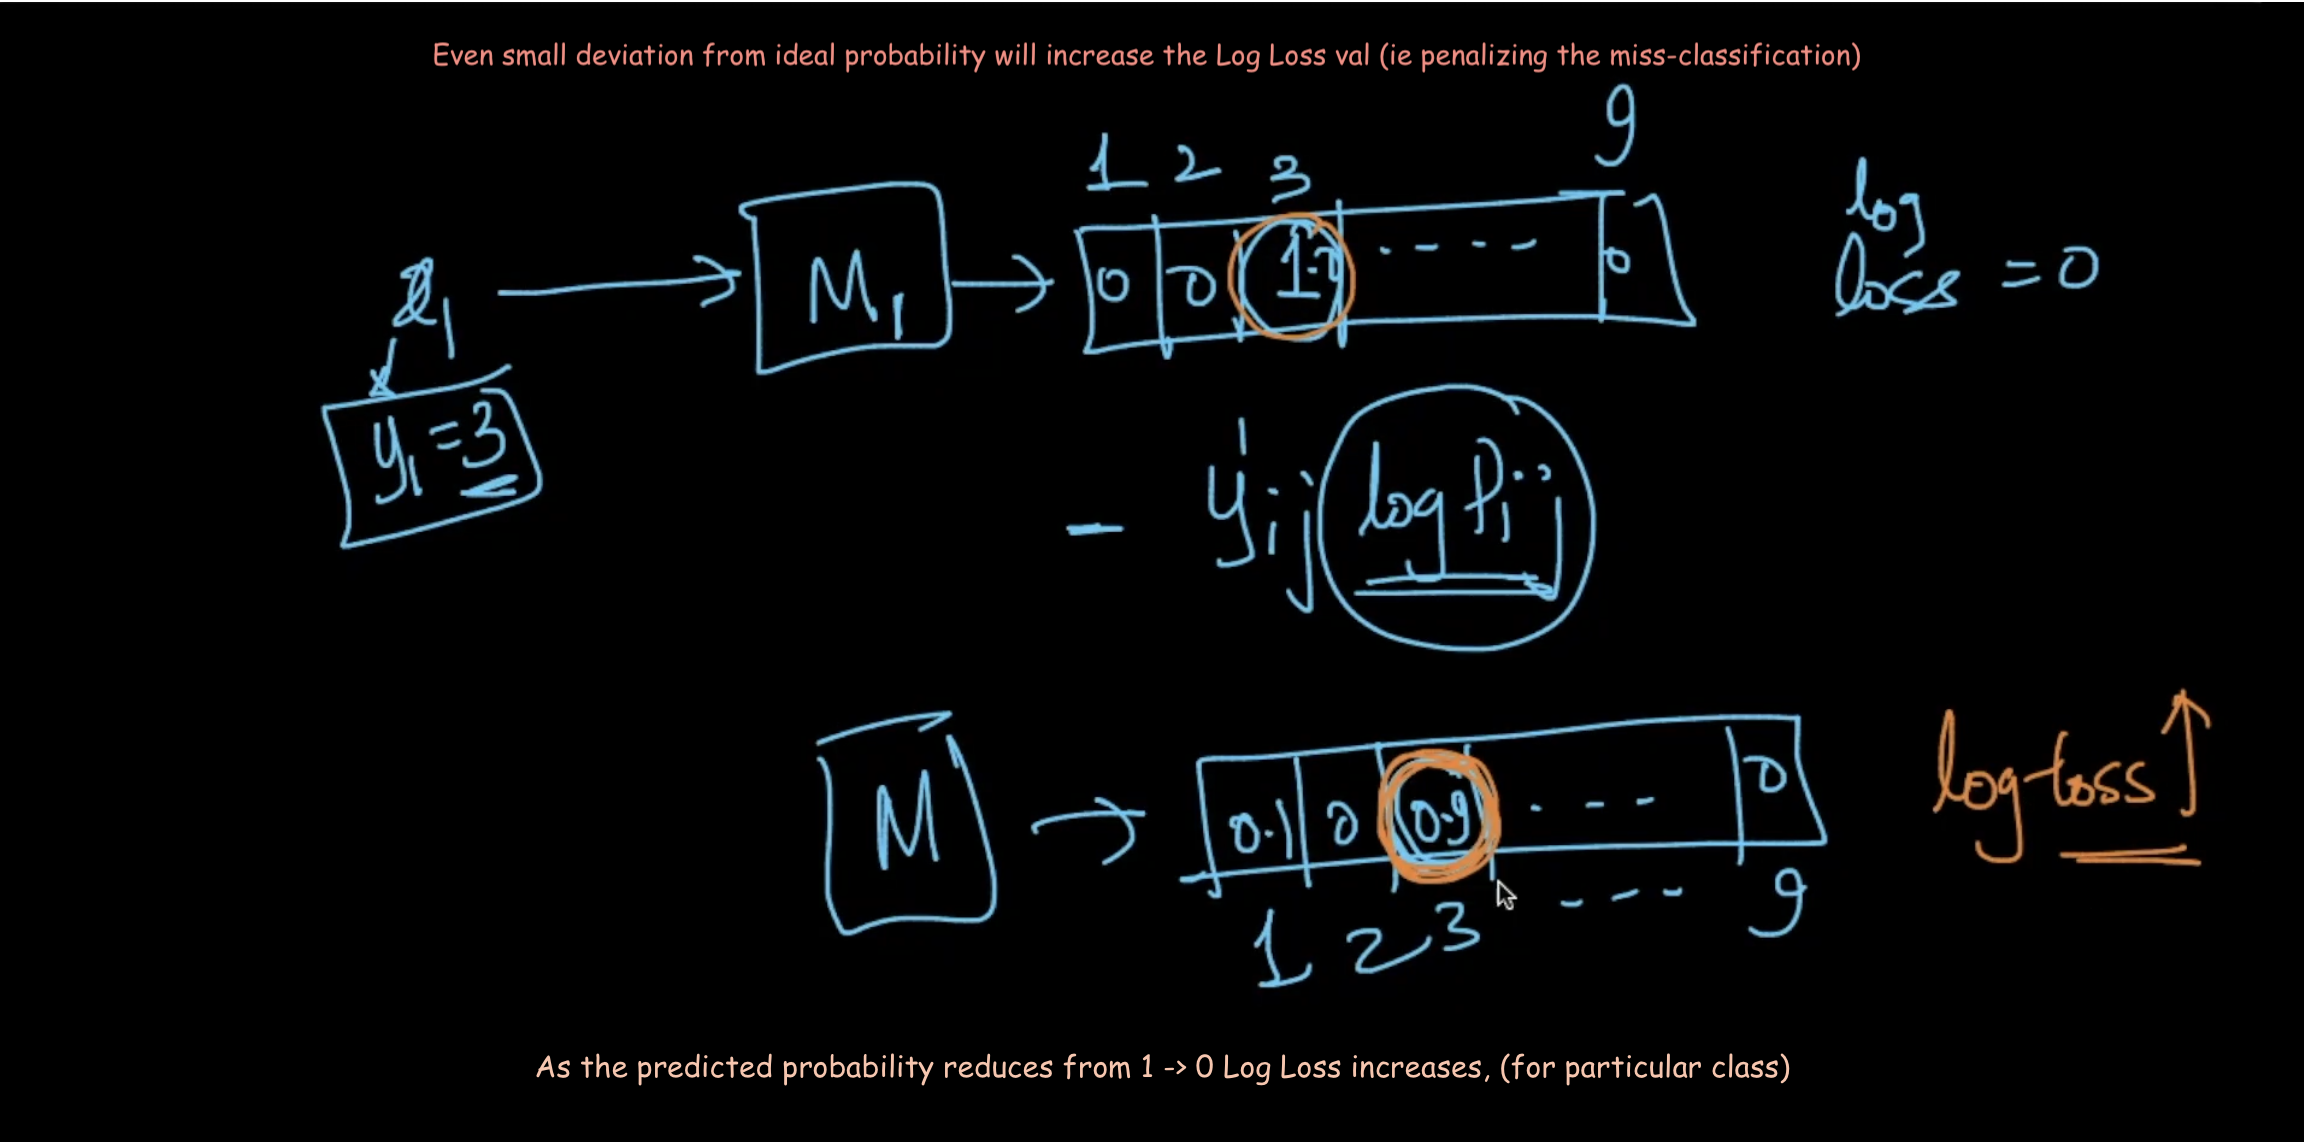 Even small deviation from ideal probability will increase the Log Loss val (ie penalizing the miss-classification)
1 2 3 9
x1 M1 0 0 1.0 - - - - 0 log loss = 0
y1 = 3
- yij log Pij
M 0.1 0 0.9 - - - 0 log-loss ↑
1 2 3 - - - 9
As the predicted probability reduces from 1 -> 0 Log Loss increases, (for particular class)